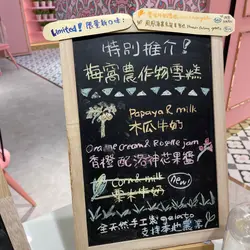 Limited! 限量新口味:
特別推介!
梅窩農作物雪糕
Papaya & milk
木瓜牛奶
Orange cream & Roselle jam
香橙配洛神花果醬
Corn & milk
粟米牛奶
(new!)
全天然手工製gelato
支持本地農業